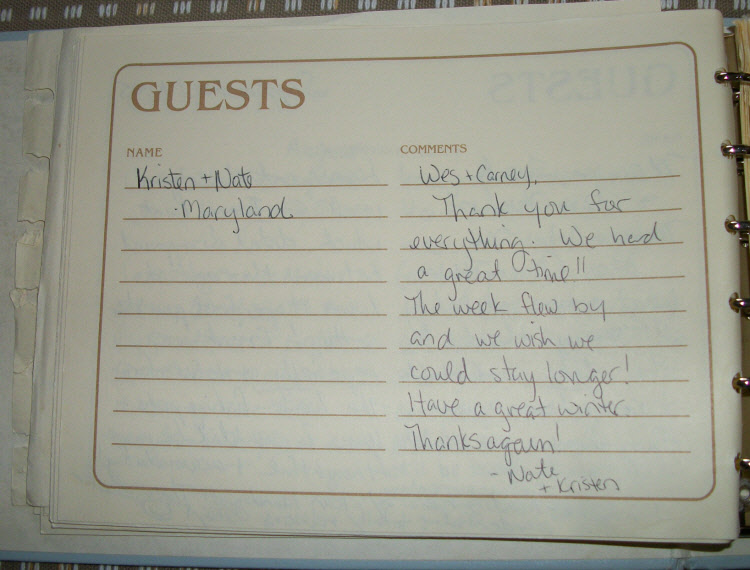 GUESTS
NAME
Kristen + Nate
- Maryland.
COMMENTS
Wes + Carney,
Thank you for
everything. We had
a great time!!
The week flew by
and we wish we
could stay longer!
Have a great winter.
Thanks again!
- Nate
+ Kristen